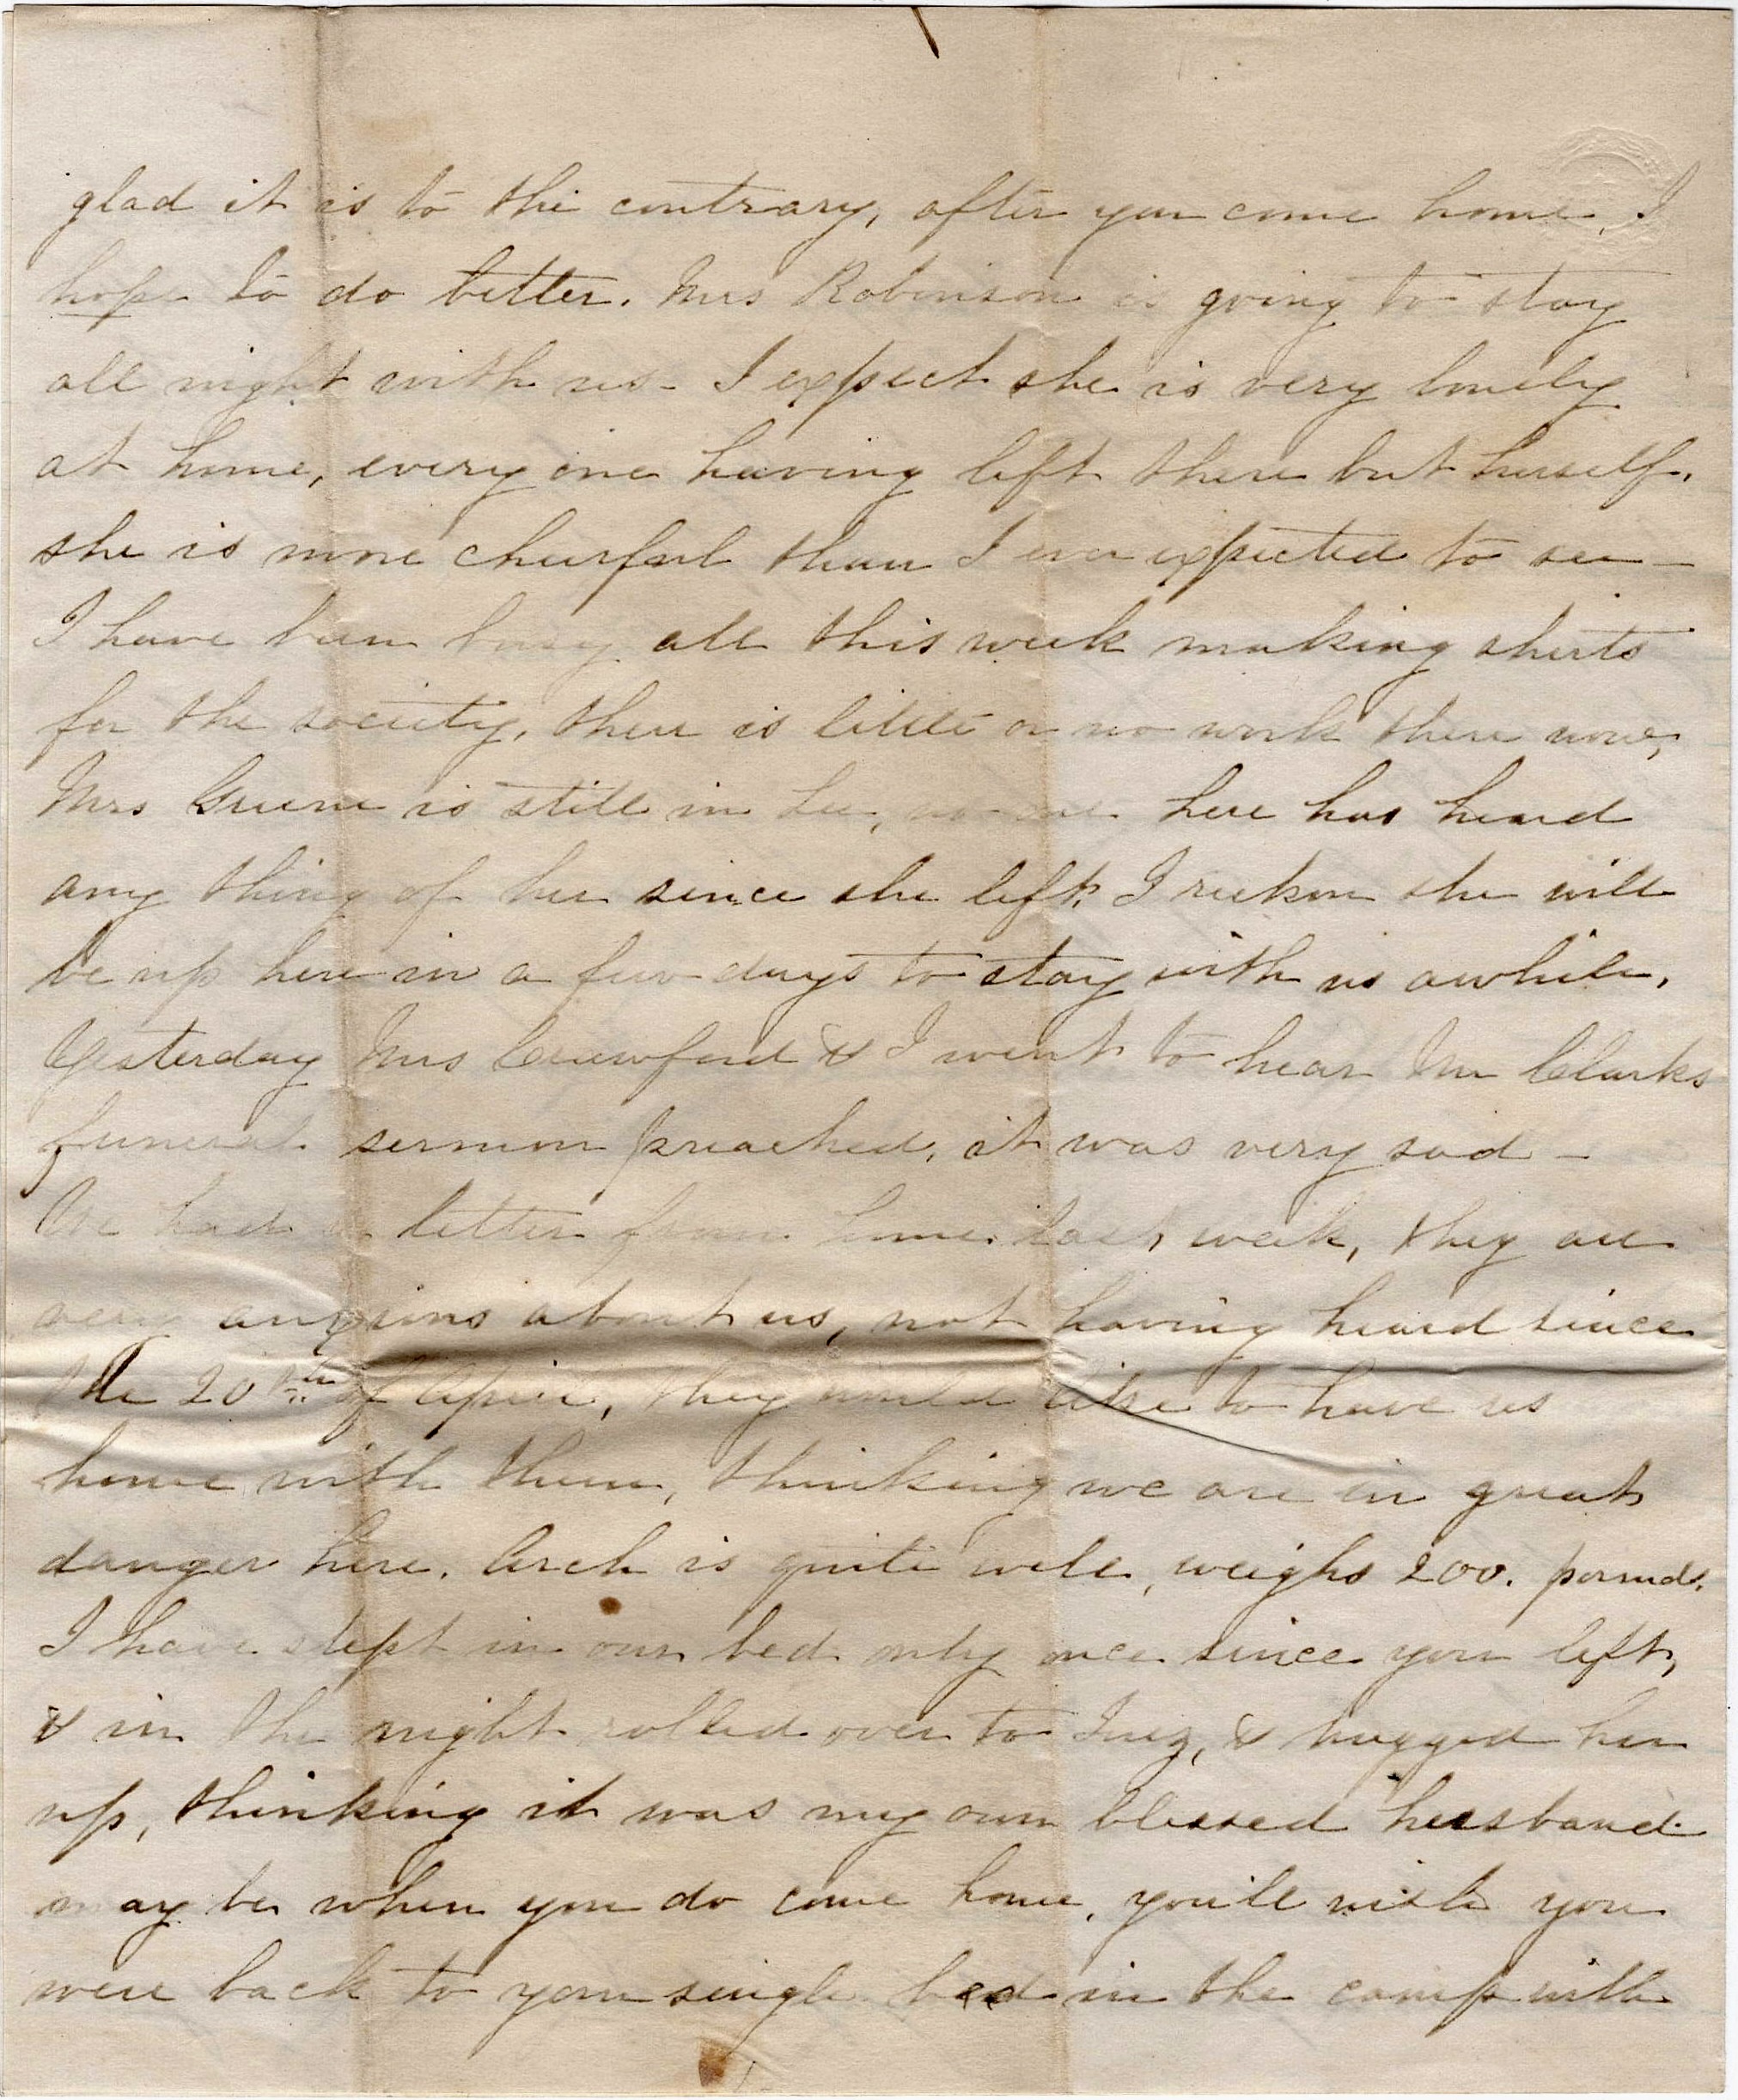 glad it is to the contrary, after you come home, I
hope to do better. Mrs Robinson is going to stay
all night with us - I expect she is very lonely
at home, every one having left there but herself.
she is more cheerful than I ever expected to see -
I have been busy all this week making shirts
for the society, there is little or no work there now,
Mrs Greene is still in Lee, no one here has heard
any thing of her since she left. I reckon she will
be up here in a few days to stay with us awhile.
Yesterday Mrs Crawford & I went to hear Mr Clarks
funeral sermon preached, it was very sad -
We had a letter from home last week, they are
very anxious about us, not having heard since
the 20th of April, they would like to have us
home with them, thinking we are in great
danger here. Arch is quite well, weighs 200. pounds.
I have slept in our bed only once since you left,
& in the night rolled over to Inez, & hugged her
up, thinking it was my own blessed husband.
may be when you do come home, you'll wish you
were back to your single bed in the camp with